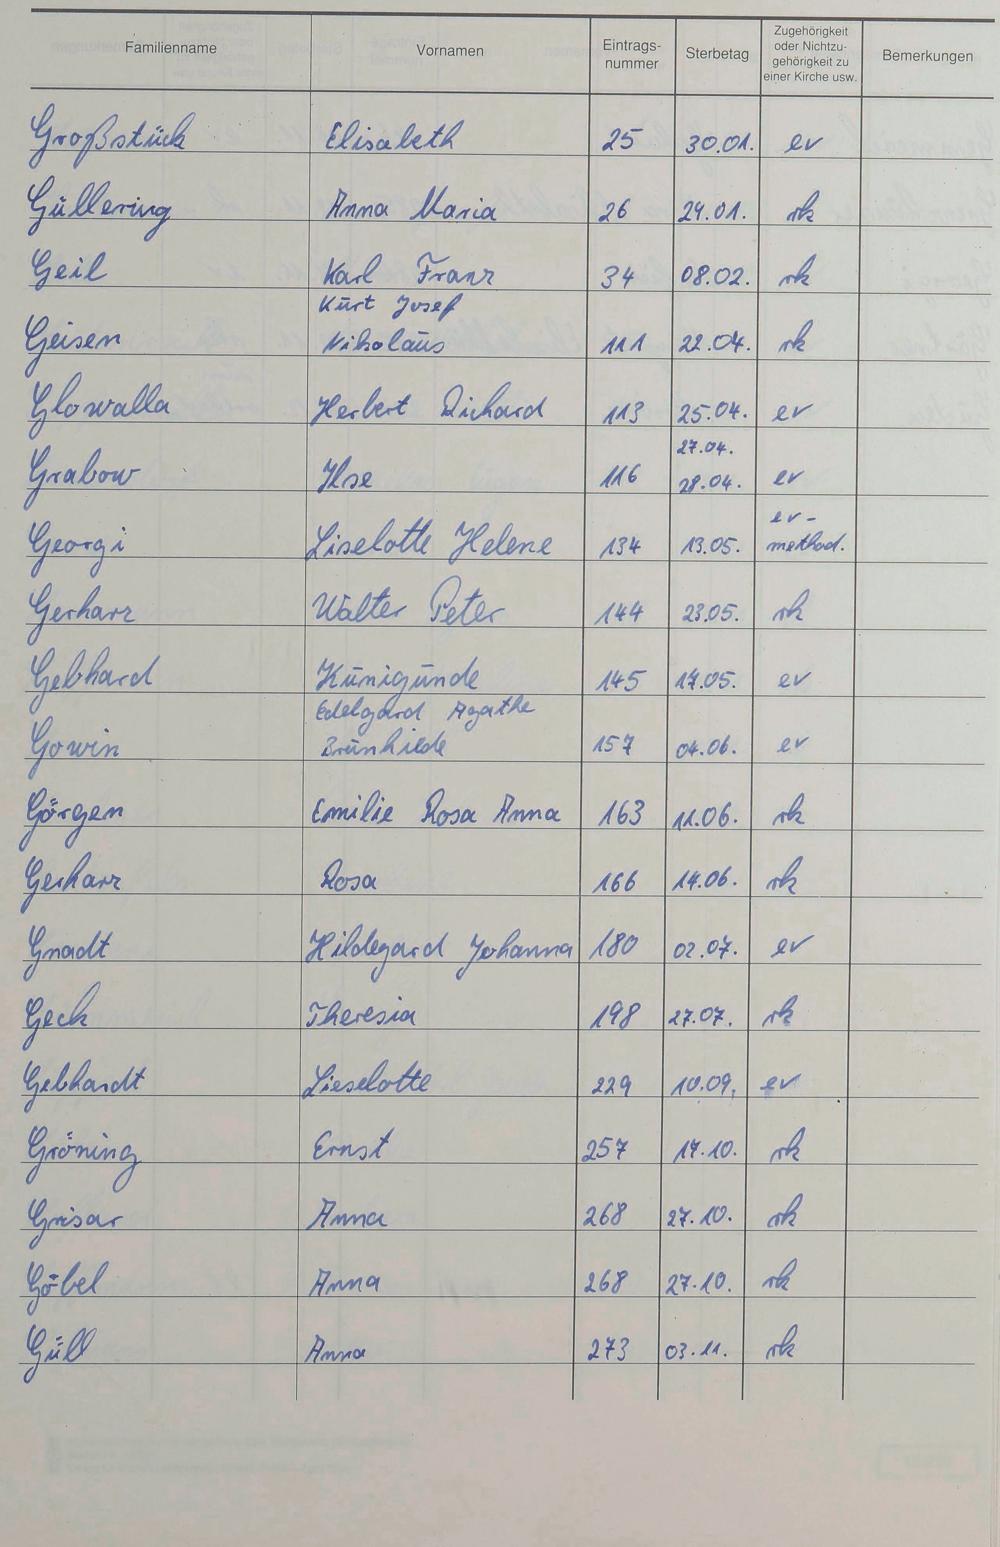 Familienname Vornamen Eintrags-nummer Sterbetag Zugehörigkeit oder Nichtzu-gehörigkeit zu einer Kirche usw. Bemerkungen
Großstück Elisabeth 25 30.01. ev
Güllering Anna Maria 26 29.01. rk
Geil Karl Franz 34 08.02. rk
Kurt Josef
Geisen Nikolaus 111 22.04. rk
Glowalla Herbert Richard 113 25.04. ev
27.04.
Grabow Ilse 116 28.04. ev
ev-
Georgi Liselotte Helene 134 13.05. method.
Gerharz Walter Peter 144 23.05. rk
Gebhard Kunigunde 145 17.05. ev
Edelgard Agathe
Gowin Brünhilde 157 04.06. ev
Görgen Emilie Rosa Anna 163 11.06. rk
Gerharz Rosa 166 14.06. rk
Gnadt Hildegard Johanna 180 02.07. ev
Geck Theresia 198 27.07. rk
Gebhardt Lieselotte 229 10.09. ev
Gröning Ernst 257 17.10. rk
Grisar Anna 268 27.10. rk
Göbel Anna 268 27.10. rk
Güll Anna 273 03.11. rk